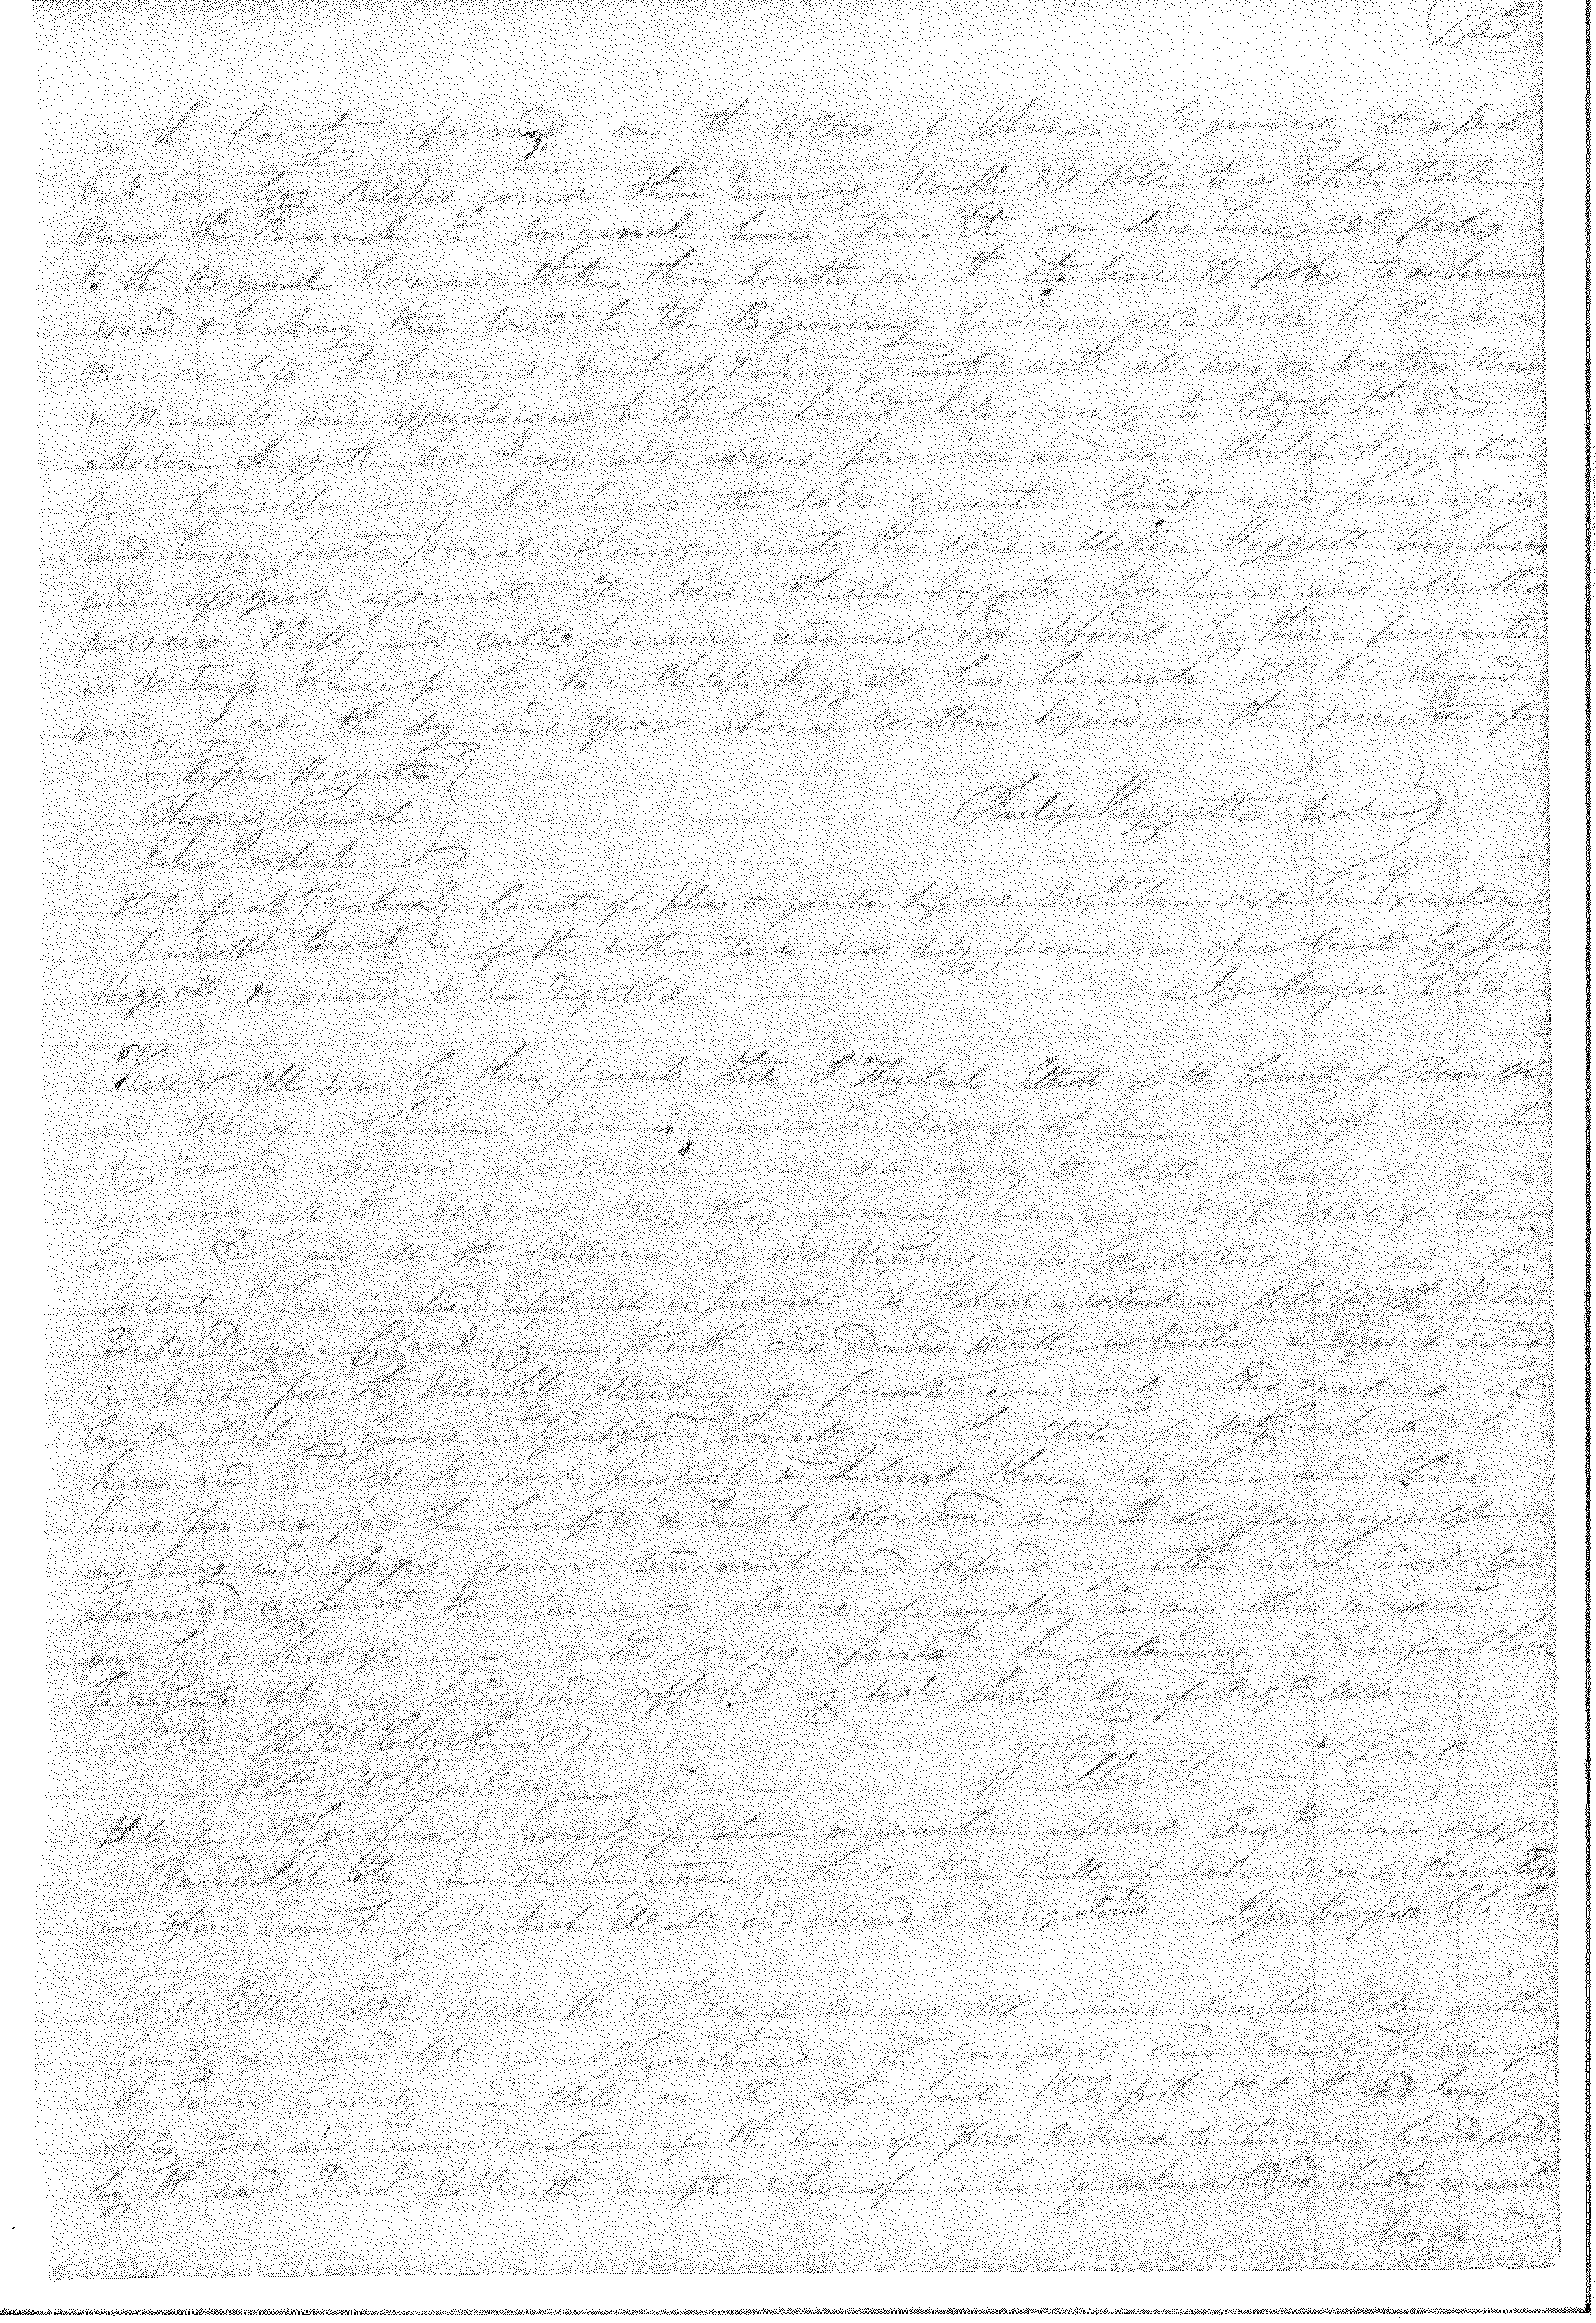 183
in the County aforesaid on the Waters of Uharie Begining at a post
Oak on Levy Pitches corner then runing North 89 poles to a White Oak
Near the Branch the Original line then Et on said line 203 poles
to the Original Corner Stake then South on the old line 89 poles to a sour
wood & hickory then West to the Begining Containing 112 acres be the same
More or less it being a tract of Land granted with all woods waters Mines
& Minerals and appurtinances to the sd Land belonging to hold to the said
Malon Hoggatt his Heirs and assigns forever and said Philip Hoggatt
for himself and his heirs the said granted Land and premises
and every part parcel thereof unto the said Malon Hoggatt his heirs
and assigns against the said Philip Hoggatt his heirs and all other
persons shall and will forever Warrant and defend by these presents
in Witness Whereof the said Philip Hoggatt has hereunto set his hand
and seal the day and year above written Signed in the presence of
Test
Jesse Hoggatt
Thomas Kendal
John English
Philip Hoggatt seal
State of N Carolina Court of pleas & quarter sessions Augt Term 1817 The Execution
Randolph County of the within Deed was duly proven in open Court by Jesse
Hoggatt & ordered to be registered — Jesse Harper C C C
Know all men by these presents that I Hezekiah Elliott of the County of Randolph
and State of N Carolina for and in consideration of the sum of have this
day released assigned and made over all my right title & Interest in or
concerning all the Negroes Molattoes formerly belonging to the Estate of
Lane Decd and all the Children of said Negroes and Molattoes and all other
Interest I have in said Estate real or personal to Robert McCracken John Worth Peter
Dicks Dugan Clark Zeno Worth and David Worth as trustees & agents acting
in trust for the Monthly Meeting of friends commonly called quakers at
Center Meeting house in Guilford County in the State of N Carolina to
have and to hold the said property & Interest therein to them and their
heirs forever for the benefit & trust aforesaid and I do for myself
my heirs and assigns forever Warrant and defend my title in the property
aforesaid against the claim or claims of myself or any other person
or by & through — to the persons aforesaid In testimony Whereof I have
hereunto set my hand and affixed my seal this 3rd day of Augt 1814
Test Clark
H Elliott seal
State of N Carolina Court of pleas & quarter sessions Augt Term 1817
Randolph Cty The Execution of the within Bill of Sale was
in Open Court by Hezekiah Elliott and ordered to be registered Jesse Harper C C C
This Indenture Made the 29th day of January 1817 Between Joseph Staley of the
County of Randolph in N Carolina on the one part and David Coble of
the same County and State on the other part Witnesseth that the said Joseph
Staley for and in consideration of the sum of Dollars to him in hand paid
by the said David Coble the receipt Whereof is hereby acknowledged hath granted
bargained